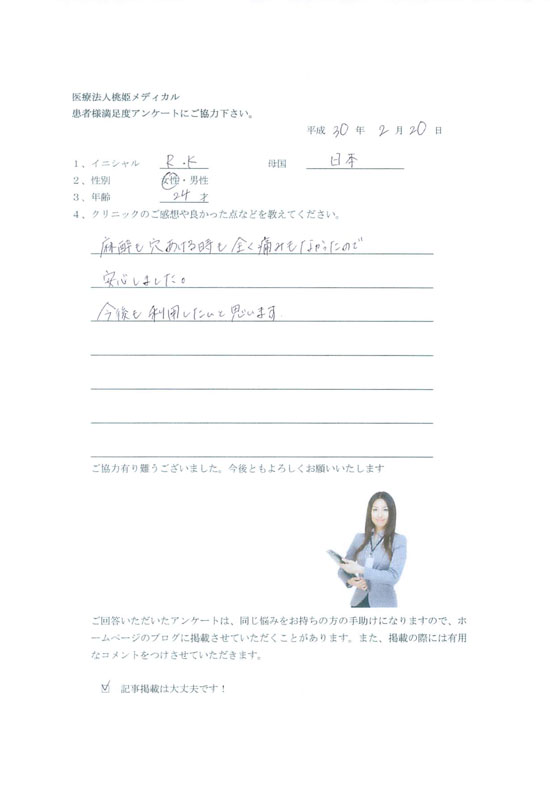 医療法人桃姫メディカル
患者様満足度アンケートにご協力下さい。
平成 30 年 2 月 20 日
1、イニシャル R.K 母国 日本
2、性別 女性・男性
3、年齢 24 才
4、クリニックのご感想や良かった点などを教えてください。
麻酔も穴あける時も全く痛みもなかったので
安心しました。
今後も利用したいと思います.
ご協力有り難うございました。今後ともよろしくお願いいたします
ご回答いただいたアンケートは、同じ悩みをお持ちの方の手助けになりますので、ホ
ームページのブログに掲載させていただくことがあります。また、掲載の際には有用
なコメントをつけさせていただきます。
☑ 記事掲載は大丈夫です！